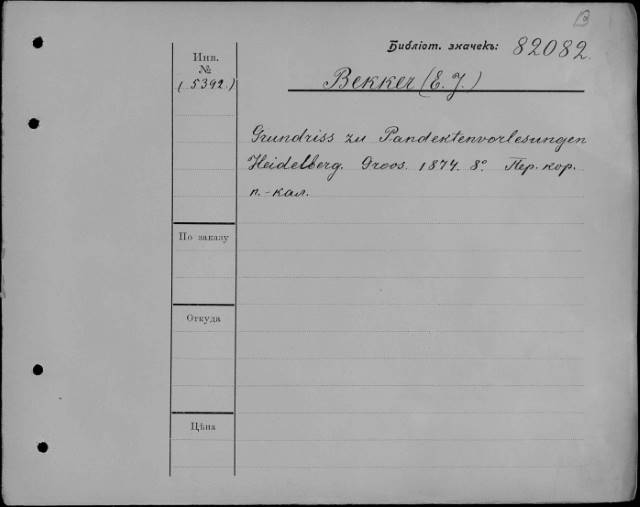 В
Библіот. значекъ: 82082.
Инв.
№
(5392.)
Bekker (E. J.)
Grundriss zu Pandektenvorlesungen
Heidelberg. Groos. 1874. 8°. Пер. кор.
п.-кал.
По заказу
Откуда
Цѣна